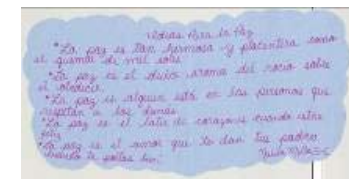 Ideas Para la Paz
*La paz es tan hermosa y placentera como
el quemar de mil soles
*La paz es el dulce aroma del rocio sobre
el
*La paz es alguien está en las personas que
respetan a los demás
*La paz es el latir de corazones cuando estás
feliz
*La paz es el amor que te dan tus padres
cuando te portas bien.